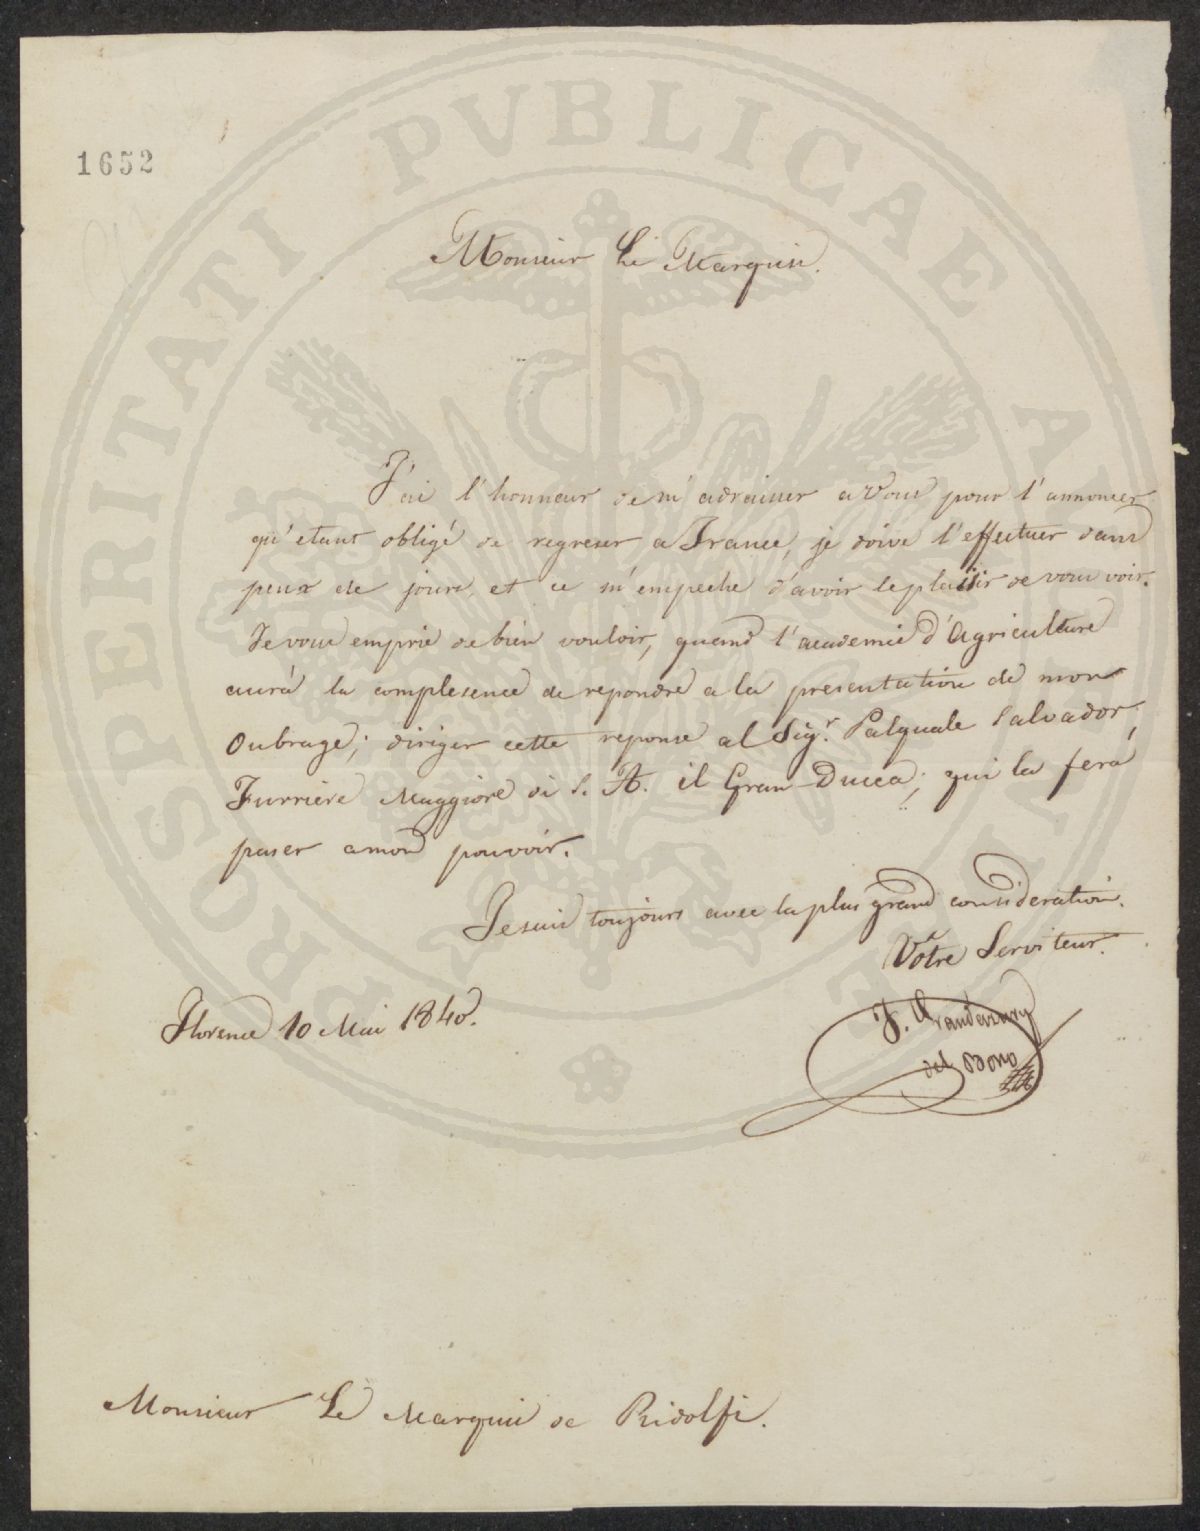 1652
PROSPERITATI PVBLICAE AVGENDAE
Monsieur Le Marquis.
J'ai l'honneur de m'adraisser a Vous pour l'annoncer
qu'etant obligé de regreser a France, je doive l'effectuer dans
peux de jours, et ce m'empeche d'avoir le plaisir de vous voir.
Je vous emprie de bien vouloir, quand l'academie d'Agriculture
aurá la complesence de repondre a la presentation de mon
Oubrage; diriger cette reponse al Sigr. Pasquale Salvador,
Furriere Maggiore di S. A. il Gran Ducca; qui la ferá
paser a mon pouvoir.
Je suis toujours avec la plus grand consideration.
Votre Serviteur.
Florence 10 Mai 1840.
F.
del Bono
Monsieur Le Marquis de Ridolfi.